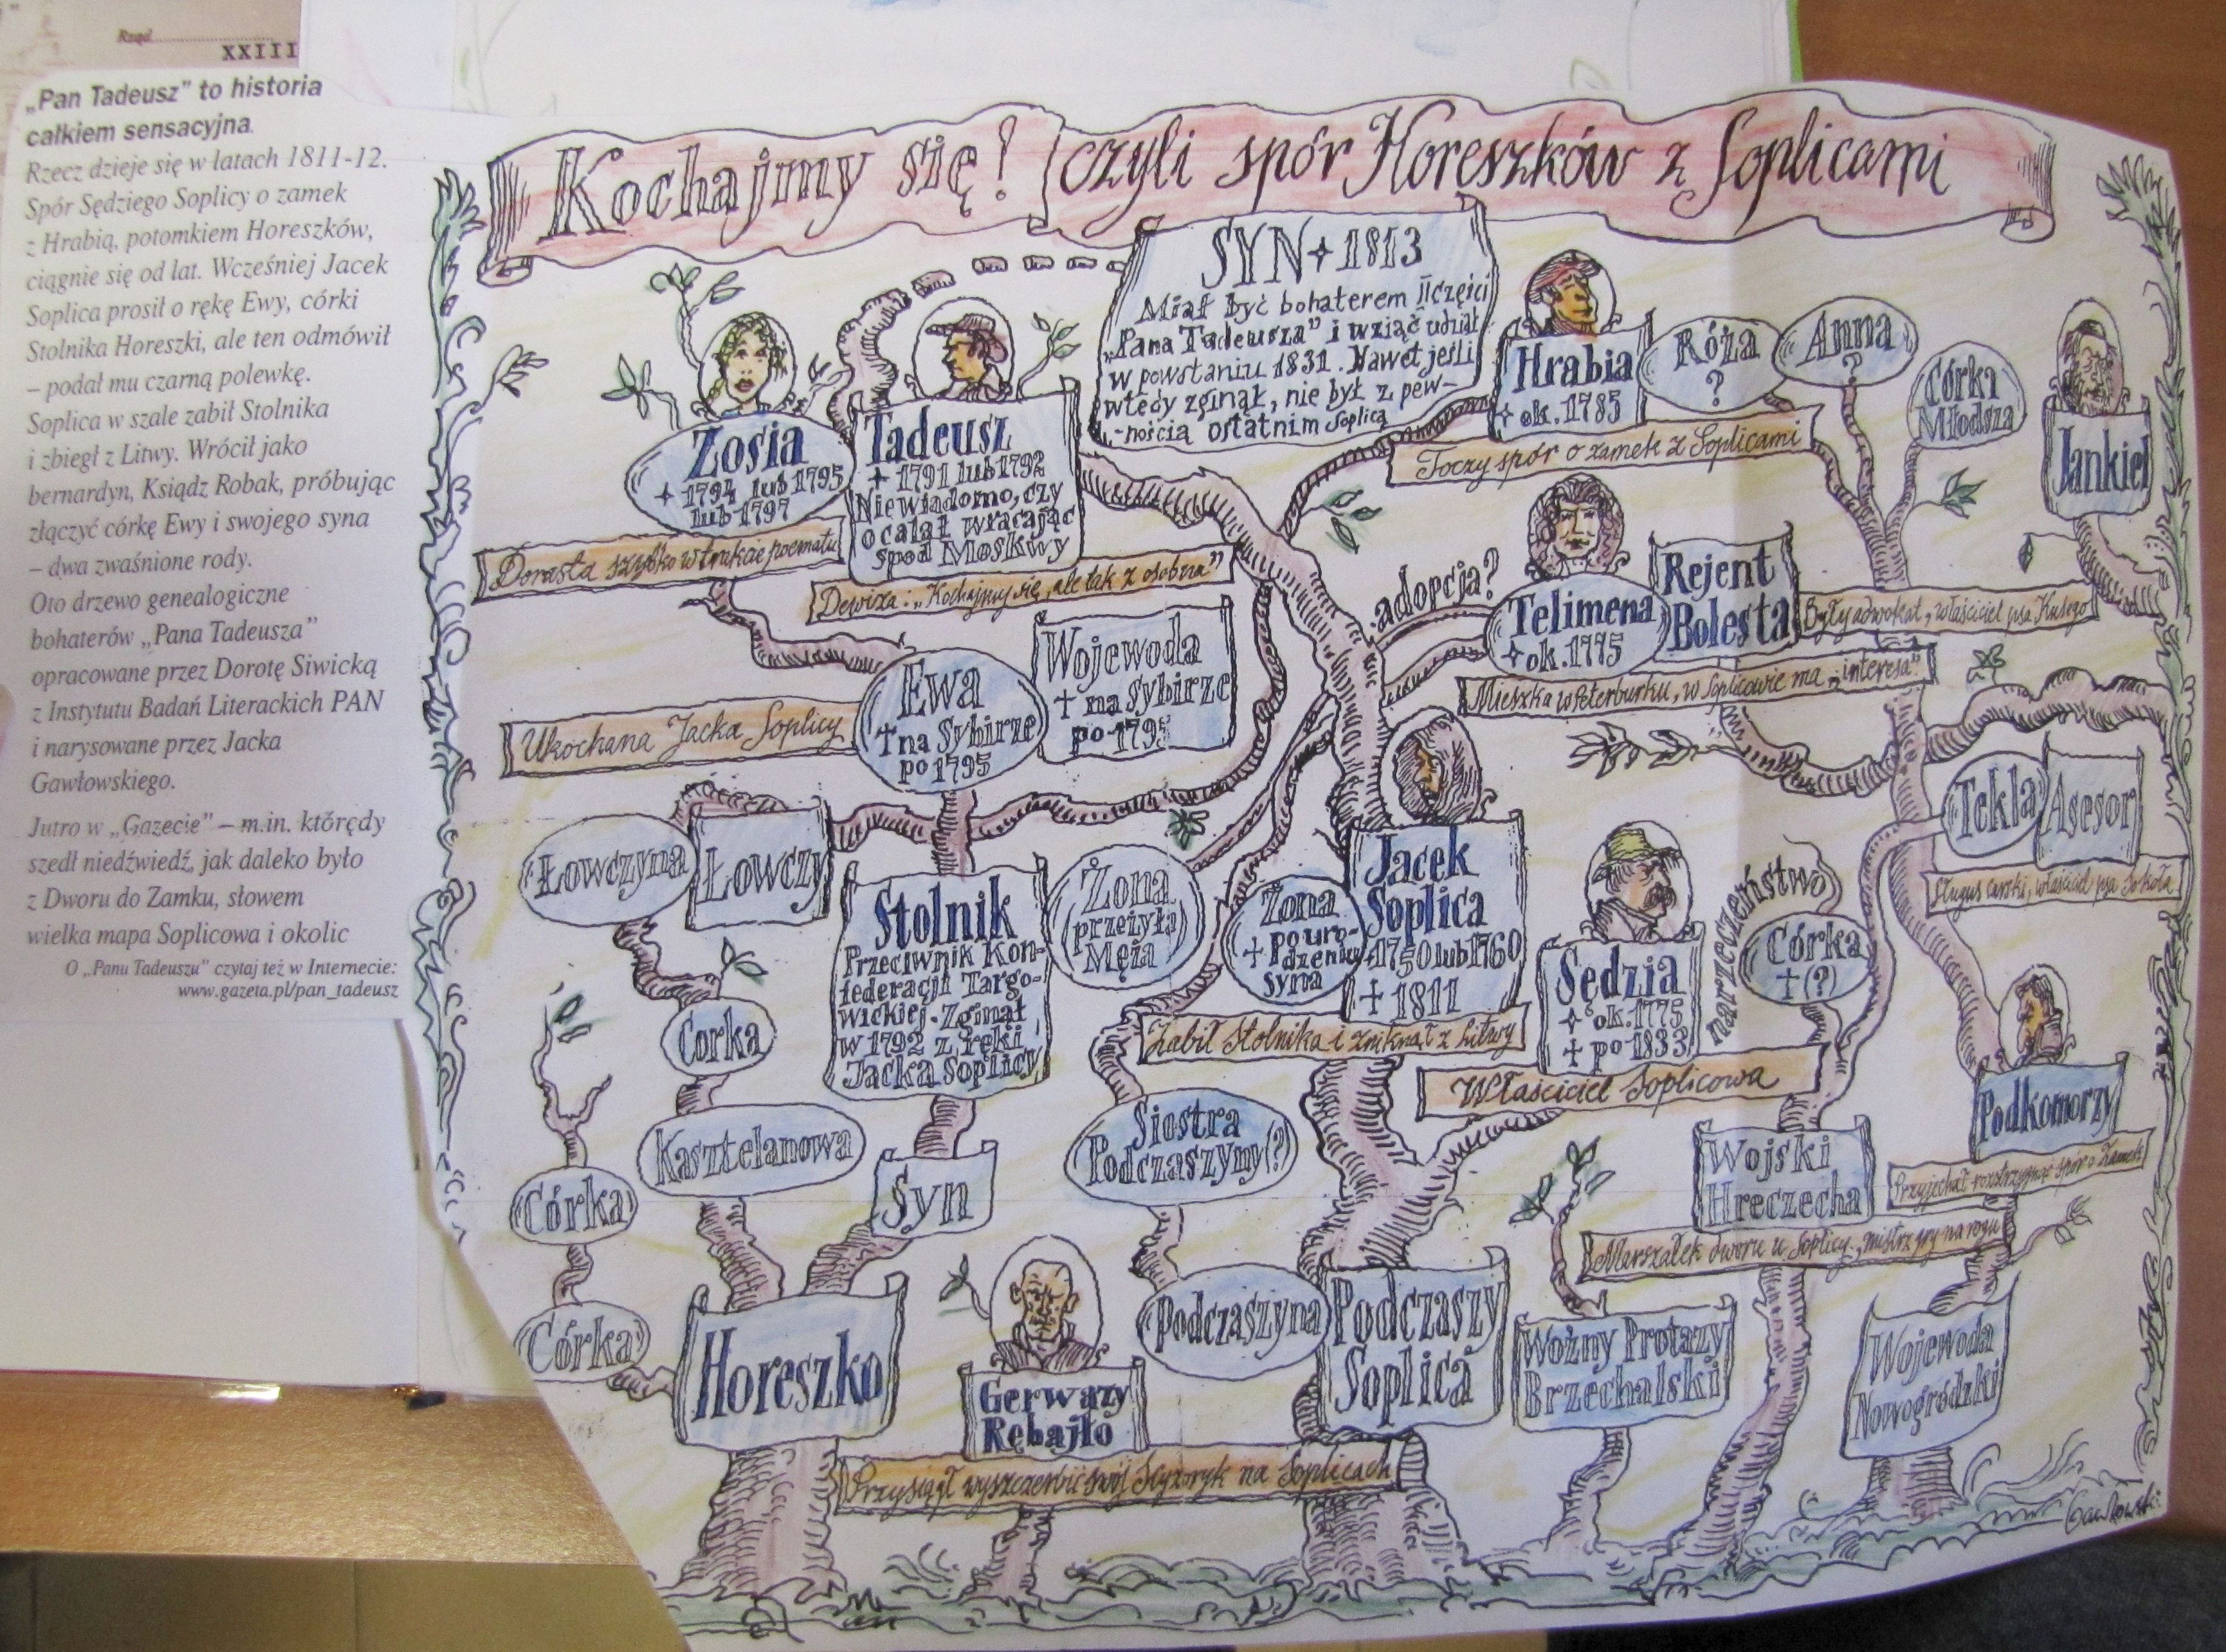 Rząd
XXIII
„Pan Tadeusz” to historia
całkiem sensacyjna.
Rzecz dzieje się w latach 1811-12.
Spór Sędziego Soplicy o zamek
z Hrabią, potomkiem Horeszków,
ciągnie się od lat. Wcześniej Jacek
Soplica prosił o rękę Ewy, córki
Stolnika Horeszki, ale ten odmówił
– podał mu czarną polewkę.
Soplica w szale zabił Stolnika
i zbiegł z Litwy. Wrócił jako
bernardyn, Ksiądz Robak, próbując
złączyć córkę Ewy i swojego syna
– dwa zwaśnione rody.
Oto drzewo genealogiczne
bohaterów „Pana Tadeusza”
opracowane przez Dorotę Siwicką
z Instytutu Badań Literackich PAN
i narysowane przez Jacka
Gawłowskiego.
Jutro w „Gazecie” – m.in. którędy
szedł niedźwiedź, jak daleko było
z Dworu do Zamku, słowem
wielka mapa Soplicowa i okolic
O „Panu Tadeuszu” czytaj też w Internecie:
www.gazeta.pl/pan_tadeusz
Kochajmy się! czyli spór Horeszków z Soplicami
SYN + 1813
Miał być bohaterem II części
„Pana Tadeusza” i wziąć udział
w powstaniu 1831. Nawet jeśli
wtedy zginął, nie był z pew-
-nością ostatnim Soplicą
Hrabia
+ ok. 1785
Róża
?
Anna
?
Córka
Młodsza
Jankiel
Toczy spór o zamek z Soplicami
Zosia
+ 1794 lub 1795
lub 1797
Dorasta szybko w trakcie poematu
Tadeusz
+ 1791 lub 1792
Niewiadomo, czy
ocalał wracając
spod Moskwy
Dewiza: „Kochajmy się, ale tak z osobna”
adopcja?
Telimena
+ ok. 1775
Rejent
Bolesta
Były adwokat, właściciel psa Kusego
Mieszka w Peterburku, w Soplicowie ma „interesa”
Ewa
† na Sybirze
po 1795
Wojewoda
† na Sybirze
po 1795
Ukochana Jacka Soplicy
Tekla
Asesor
Sługus carski, właściciel psa Sokoła
Łowczyna
Łowczy
Stolnik
Przeciwnik Kon-
federacji Targo-
wickiej. Zginął
w 1792 z ręki
Jacka Soplicy
Żona
(przeżyła
Męża
Żona
† po uro-
dzeniu
syna
Jacek
Soplica
+ 1750 lub 1760
† 1811
Zabił Stolnika i zniknął z Litwy
Sędzia
+ ok. 1775
† po 1833
Właściciel Soplicowa
narzeczeństwo
Córka
† (?)
Podkomorzy
Przyjechał rozstrzygnąć spór o Zamek
Córka
Kasztelanowa
Syn
Siostra
Podczaszyny (?)
Wojski
Hreczecha
Marszałek dworu u Soplicy, mistrz gry na rogu
Córka
Córka
Horeszko
Gerwazy
Rębajło
Przysiągł wyszczerbić swój Scyzoryk na Soplicach
Podczaszyna
Podczaszy
Soplica
Woźny Protazy
Brzechalski
Wojewoda
Nowogródzki
Gawłowski